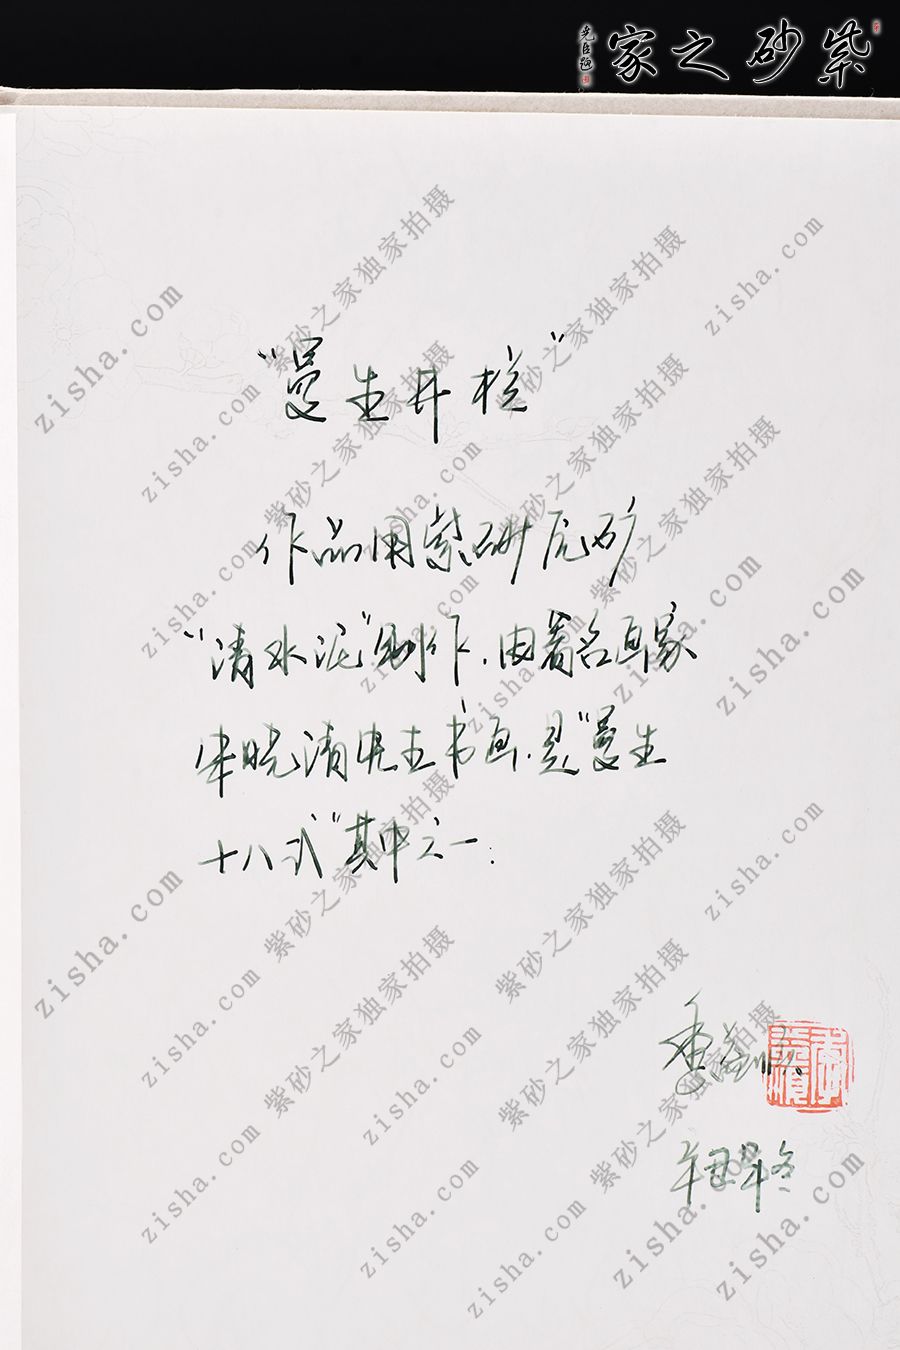 紫砂之家
尧臣题
"曼生井栏"
作品用紫砂原矿
"清水泥"制作，由著名画家
朱晓清先生书画，是"曼生
十八式"其中之一.
季益顺
辛丑年冬
zisha.com 紫砂之家独家拍摄